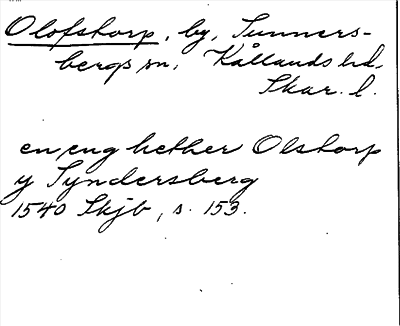 Olofstorp, by, Sunners-
bergs sn, Kållands hd,
Skar. l.
en eng hether Olstorp
y Syndersberg
1540 Skjb, s. 153.